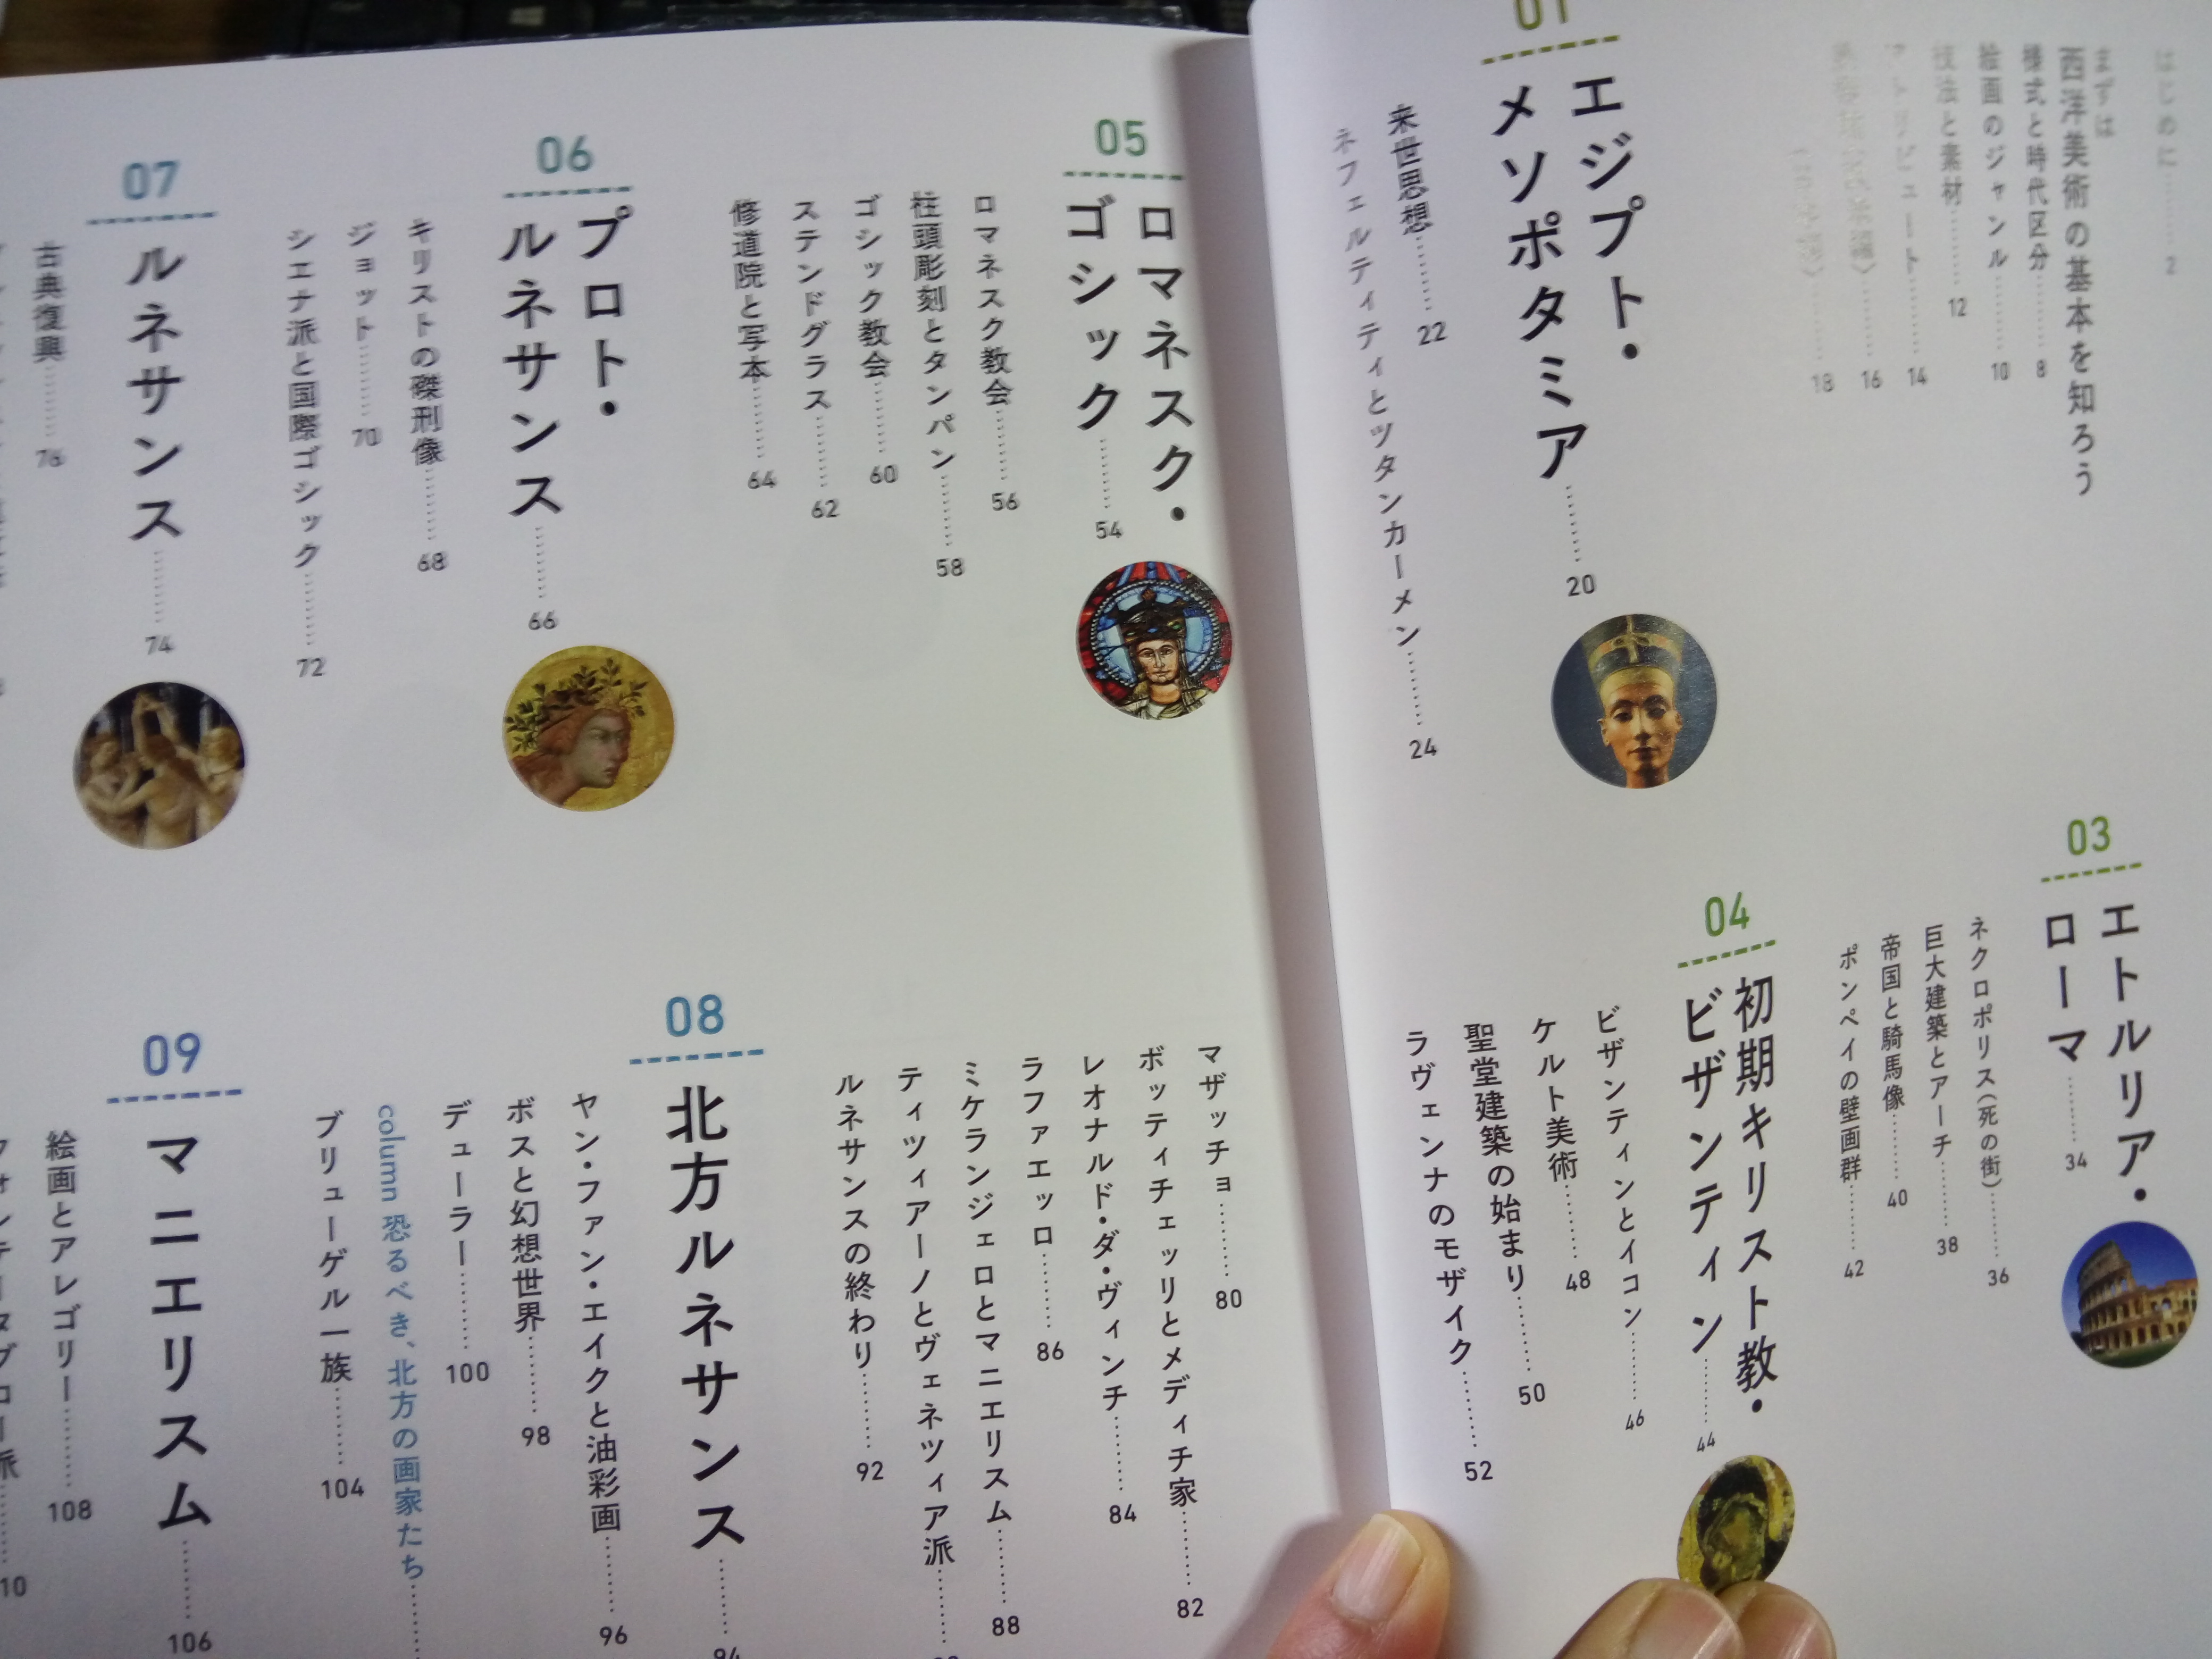 はじめに………2
まずは
西洋美術の基本を知ろう
様式と時代区分………8
絵画のジャンル………10
技法と素材………12
アトリビュート………14
………16
………18
01
エジプト・
メソポタミア………20
来世思想………22
ネフェルティティとツタンカーメン………24
03
エトルリア・
ローマ………34
ネクロポリス(死の街)………36
巨大建築とアーチ………38
帝国と騎馬像………40
ポンペイの壁画群………42
04
初期キリスト教・
ビザンティン………44
ビザンティンとイコン………46
ケルト美術………48
聖堂建築の始まり………50
ラヴェンナのモザイク………52
05
ロマネスク・
ゴシック………54
ロマネスク教会………56
柱頭彫刻とタンパン………58
ゴシック教会………60
ステンドグラス………62
修道院と写本………64
06
プロト・
ルネサンス………66
キリストの磔刑像………68
ジョット………70
シエナ派と国際ゴシック………72
07
ルネサンス………74
古典復興………76
マザッチョ………80
ボッティチェッリとメディチ家………82
レオナルド・ダ・ヴィンチ………84
ラファエッロ………86
ミケランジェロとマニエリスム………88
ティツィアーノとヴェネツィア派………
ルネサンスの終わり………92
08
北方ルネサンス………94
ヤン・ファン・エイクと油彩画………96
ボスと幻想世界………98
デューラー………100
column 恐るべき、北方の画家たち………
ブリューゲル一族………104
09
マニエリスム………106
絵画とアレゴリー………108